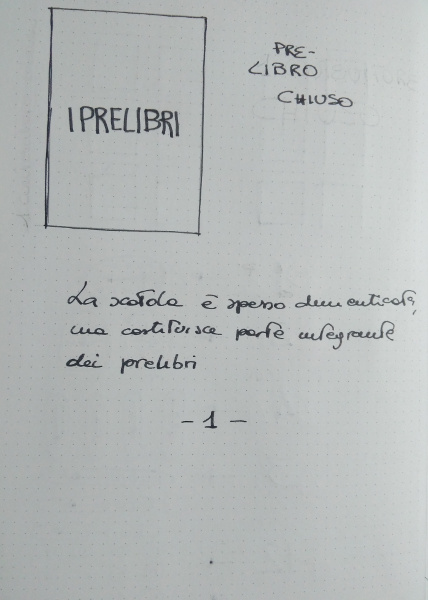 I PRELIBRI
PRE-
LIBRO
CHIUSO
La scatola è spesso dimenticata,
ma costituisce parte integrante
dei prelibri
- 1 -